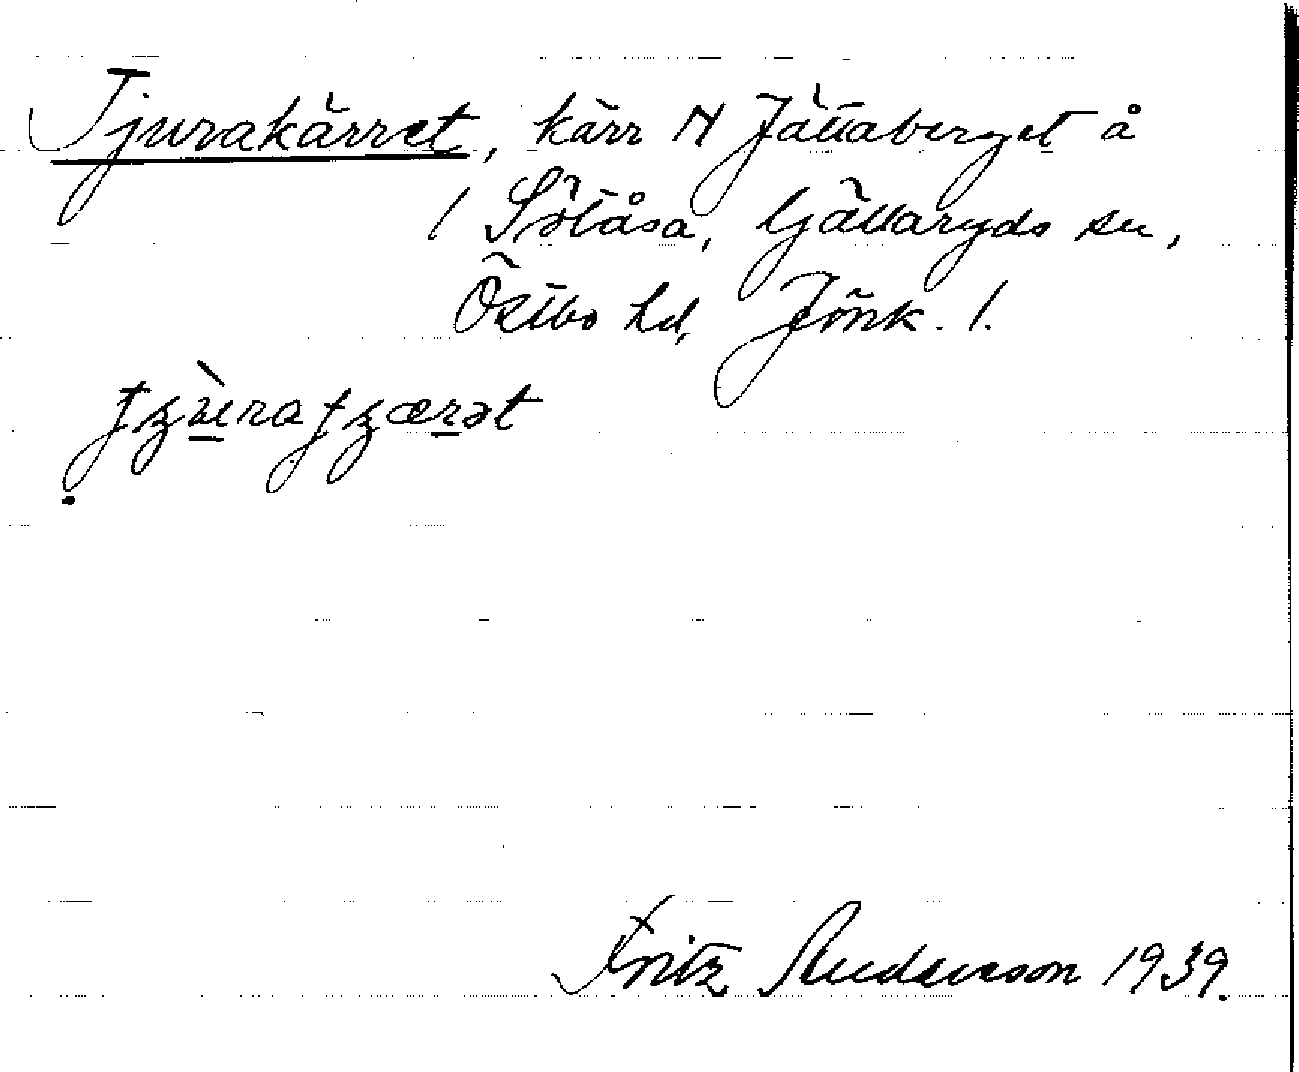 Tjurakärret, kärr N Jättaberget å
1 Sötåsa, Gällaryds sn,
Östbo hd, Jönk. l.
Fritz Andersson 1939.